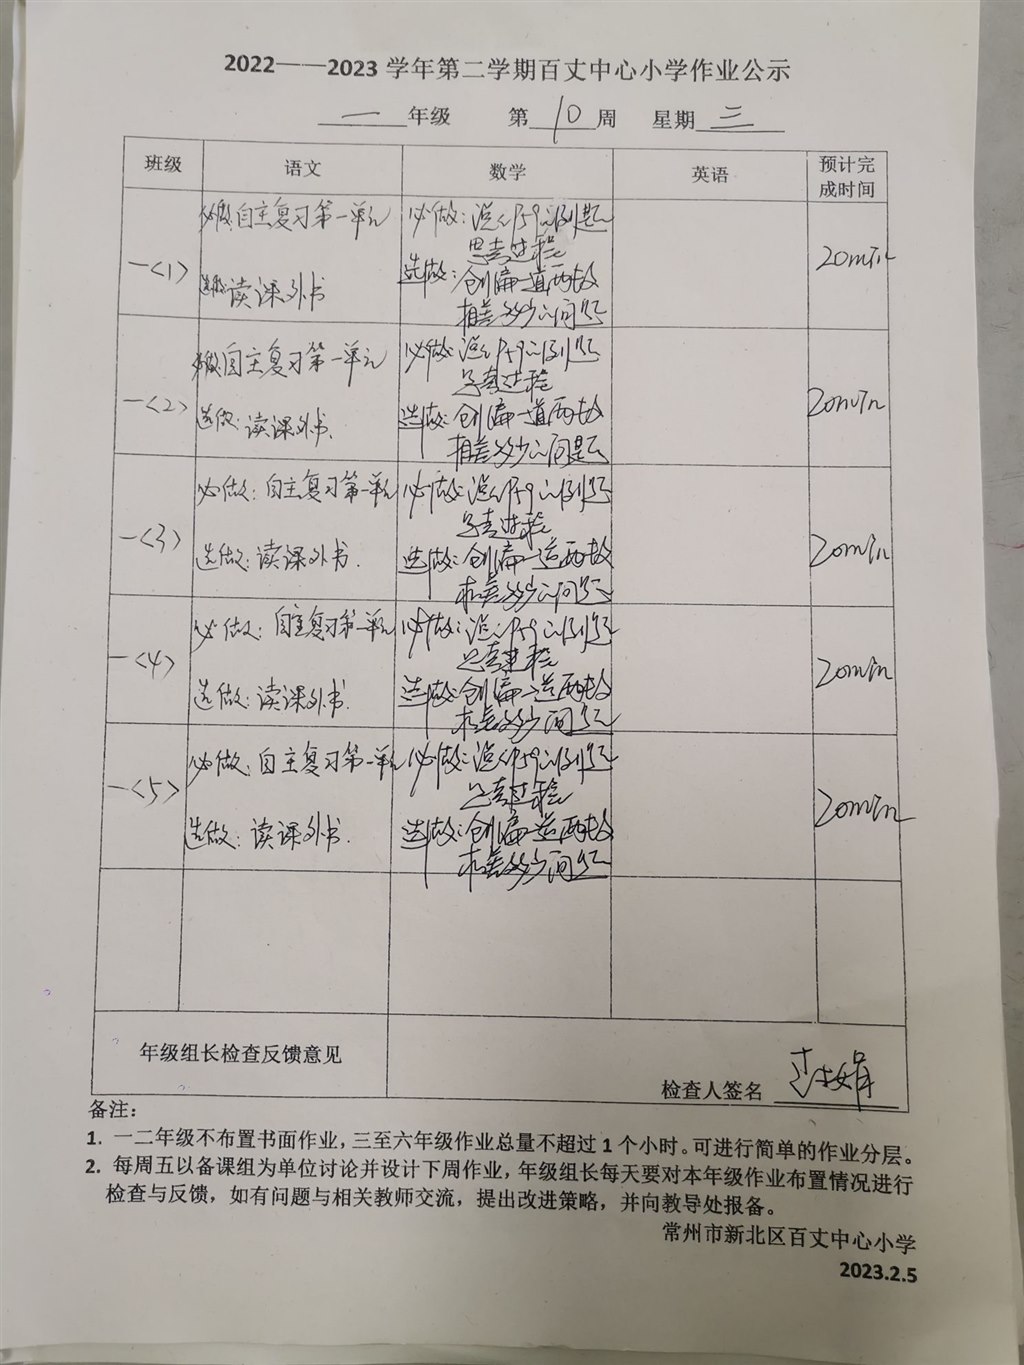 2022——2023 学年第二学期百丈中心小学作业公示
一 年级 第 10 周 星期 三
班级 语文 数学 英语 预计完成时间
一<1>
必做:自主复习第一单元
选做:读课外书
必做:说说P59的例题
思考过程
选做:创编一道两数
相差多少的问题
20min
一<2>
必做:自主复习第一单元
选做:读课外书.
必做:说说P59的例题
思考过程
选做:创编一道两数
相差多少的问题
20min
一<3>
必做:自主复习第一单元
选做:读课外书.
必做:说说P59的例题
思考过程
选做:创编一道两数
相差多少的问题
20min
一<4>
必做:自主复习第一单元
选做:读课外书.
必做:说说P59的例题
思考过程
选做:创编一道两数
相差多少问题
20min
一<5>
必做:自主复习第一单元
选做:读课外书.
必做:说说P59的例题
思考过程
选做:创编一道两数
相差多少问题
20min
年级组长检查反馈意见
检查人签名
备注:
1. 一二年级不布置书面作业，三至六年级作业总量不超过 1 个小时。可进行简单的作业分层。
2. 每周五以备课组为单位讨论并设计下周作业，年级组长每天要对本年级作业布置情况进行
检查与反馈，如有问题与相关教师交流，提出改进策略，并向教导处报备。
常州市新北区百丈中心小学
2023.2.5